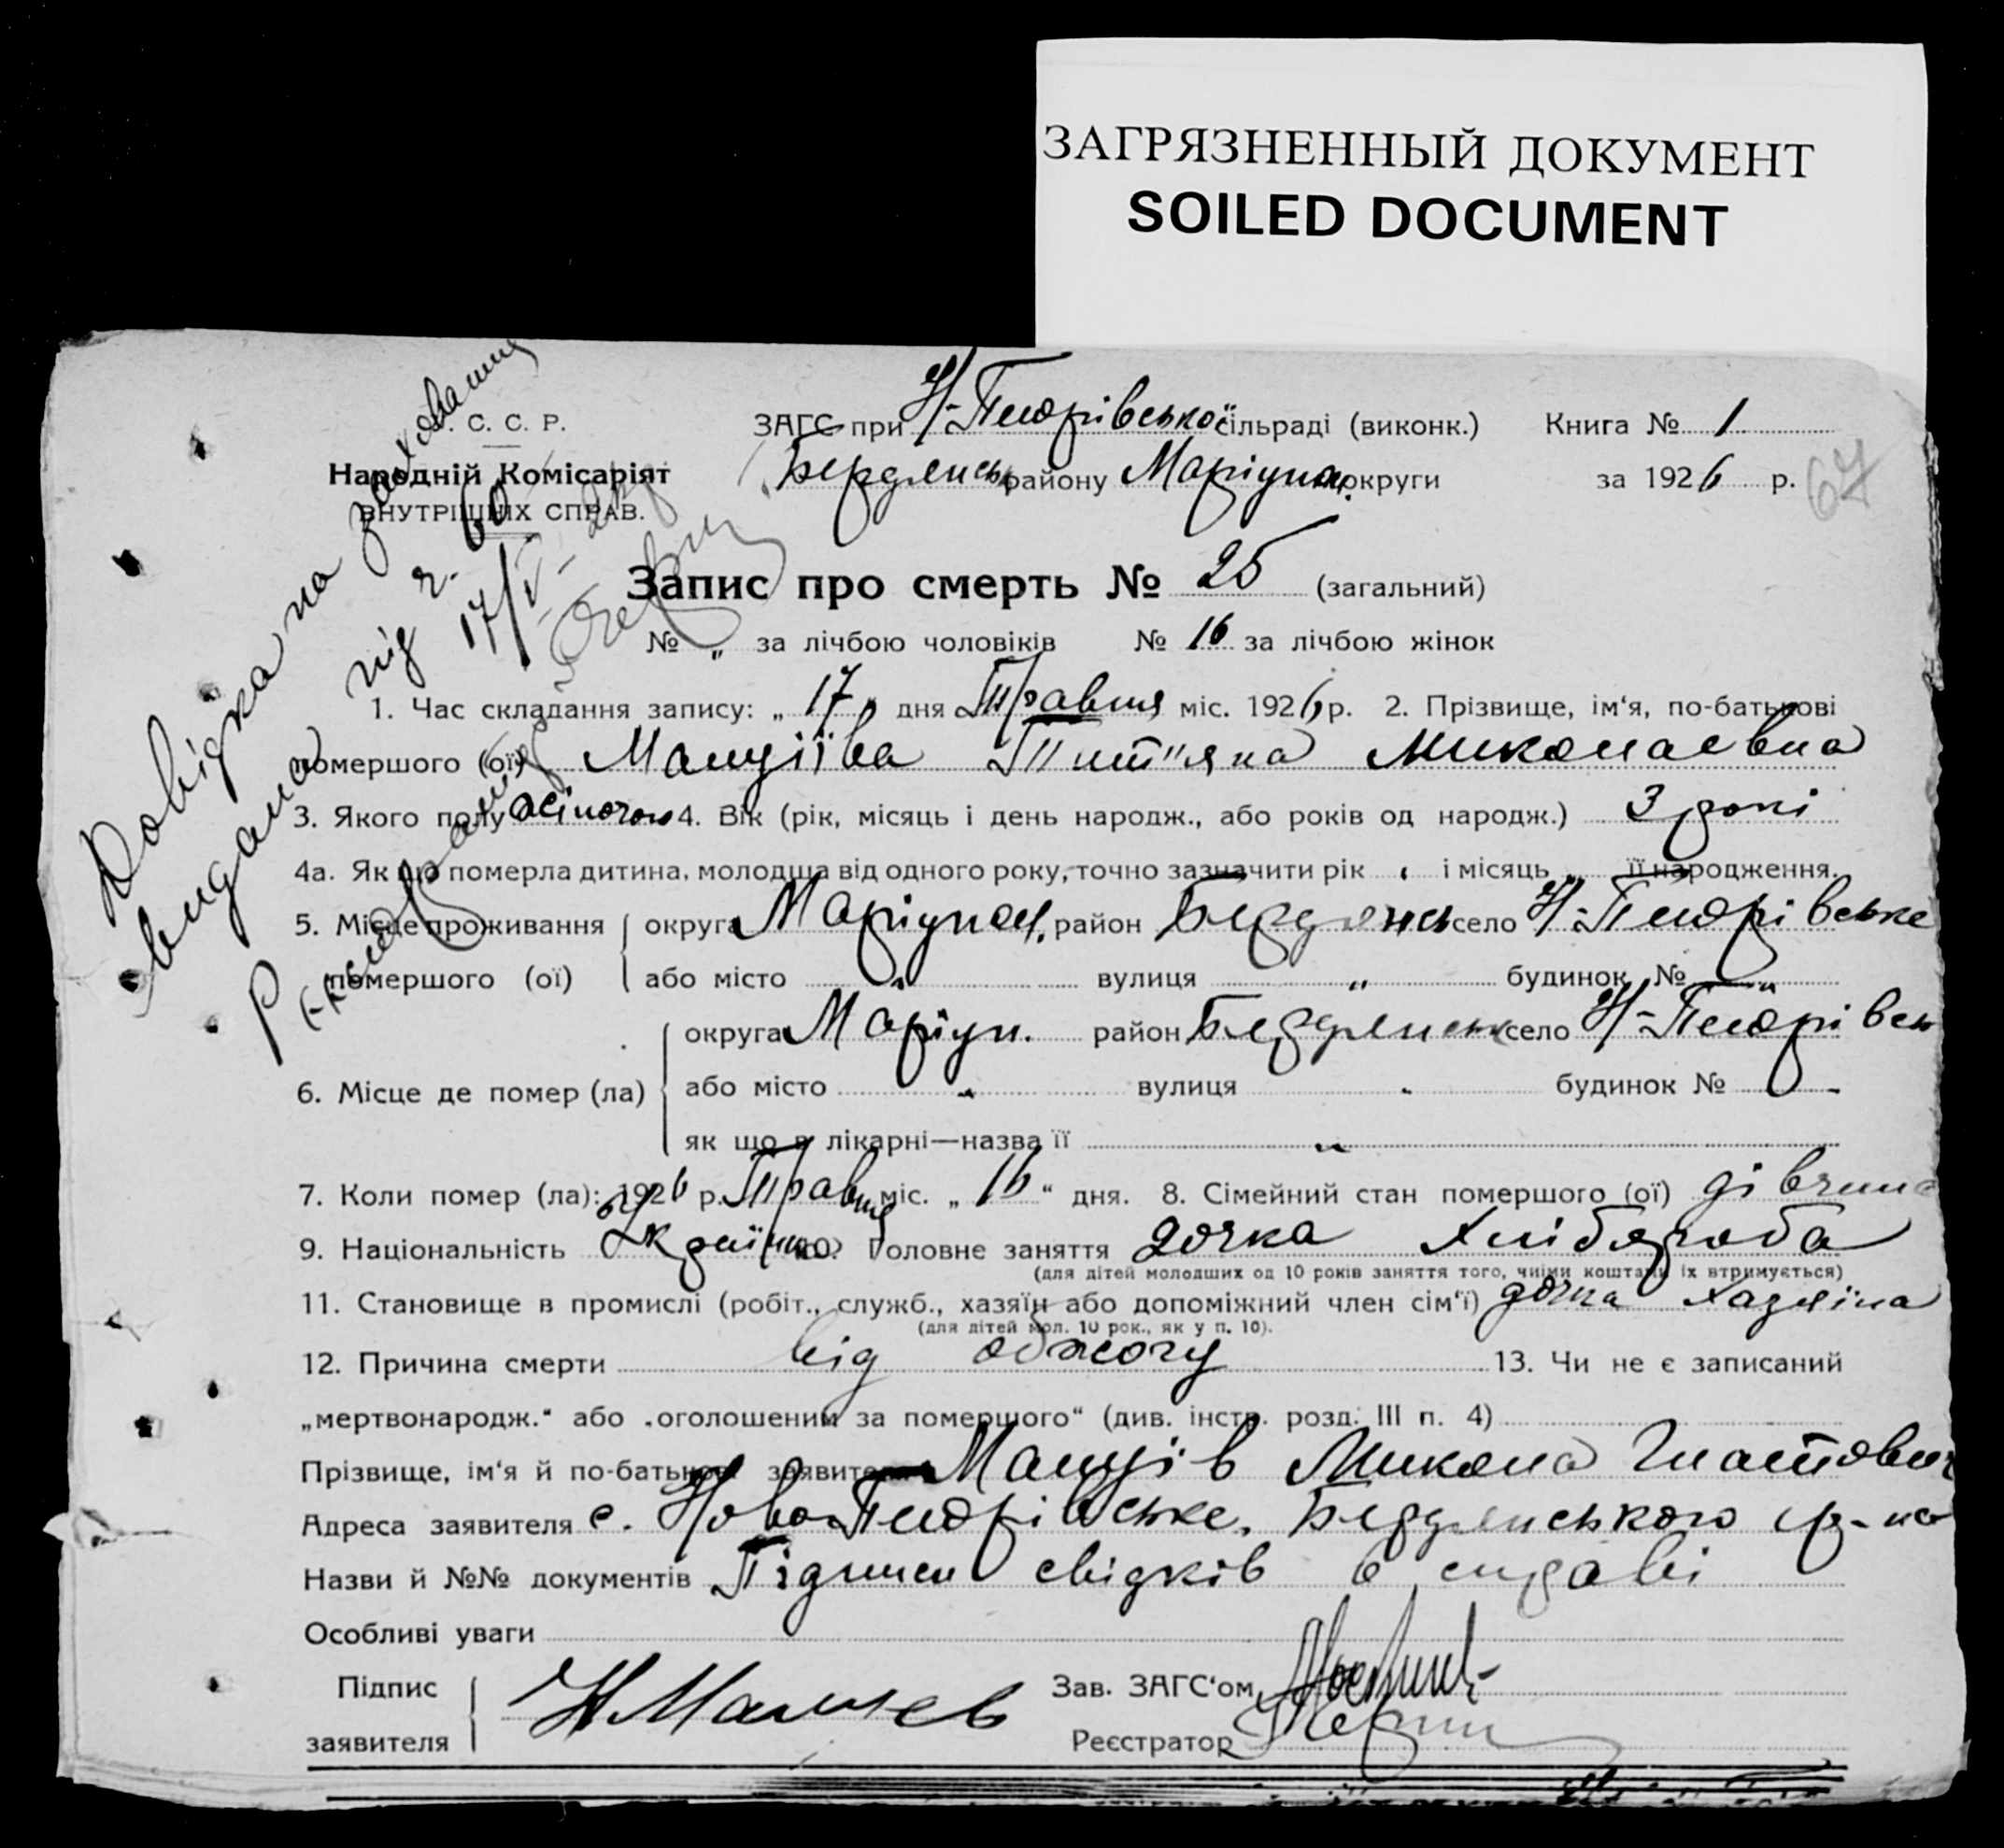 ЗАГРЯЗНЕННЫЙ ДОКУМЕНТ
SOILED DOCUMENT
. С. С. Р.
Народній Комісаріят
ВНУТРІШНІХ СПРАВ.
ЗАГС при Н-Петрівської сільраді (виконк.) Книга № 1
Бердянськ району Маріуп. округи за 1926 р.
67
Довідка на заховання
видана під ч. 60
17/V-26
Запис про смерть № 25 (загальний)
№ „ за лічбою чоловіків № 16 за лічбою жінок
1. Час складання запису: „ 17 „ дня Травня міс. 1926 р. 2. Прізвище, ім‘я, по-батькові
помершого (ої) Тит"яна Миколаевна
3. Якого полу жіночого 4. Вік (рік, місяць і день народж., або років од народж.) 3 роки
4а. Як що померла дитина, молодша від одного року, точно зазначити рік і місяць „ її народження.
5. Місце проживання округа Маріупол. район Бердянськ село Н-Петрівське
помершого (ої) або місто „ вулиця „ будинок № „
округа Маріуп. район Бердянськ село Н-Петрівськ
6. Місце де помер (ла) або місто „ вулиця - будинок № -
як що в лікарні—назва її „
7. Коли помер (ла): 1926 р. Травня міс. „ 16 “ дня. 8. Сімейний стан помершого (ої) дівчина
9. Національність Українка 10. Головне заняття дочка Хлібороба
(для дітей молодших од 10 років заняття того, чиїми коштами їх втримується)
11. Становище в промислі (робіт., служб., хазяїн або допоміжний член сім‘ї) дочка Хазяїна
(для дітей мол. 10 рок., як у п. 10).
12. Причина смерти від обжогу 13. Чи не є записаний
„мертвонародж.“ або „оголошеним за помершого“ (див. інстр. розд. III п. 4)
Прізвище, ім‘я й по-батькові заявителя Микола
Адреса заявителя с. Ново-Петрівське, Бердянського р-на
Назви й №№ документів Підписи свідків в справі
Особливі уваги
Підпис
заявителя
Зав. ЗАГС‘ом
Реєстратор